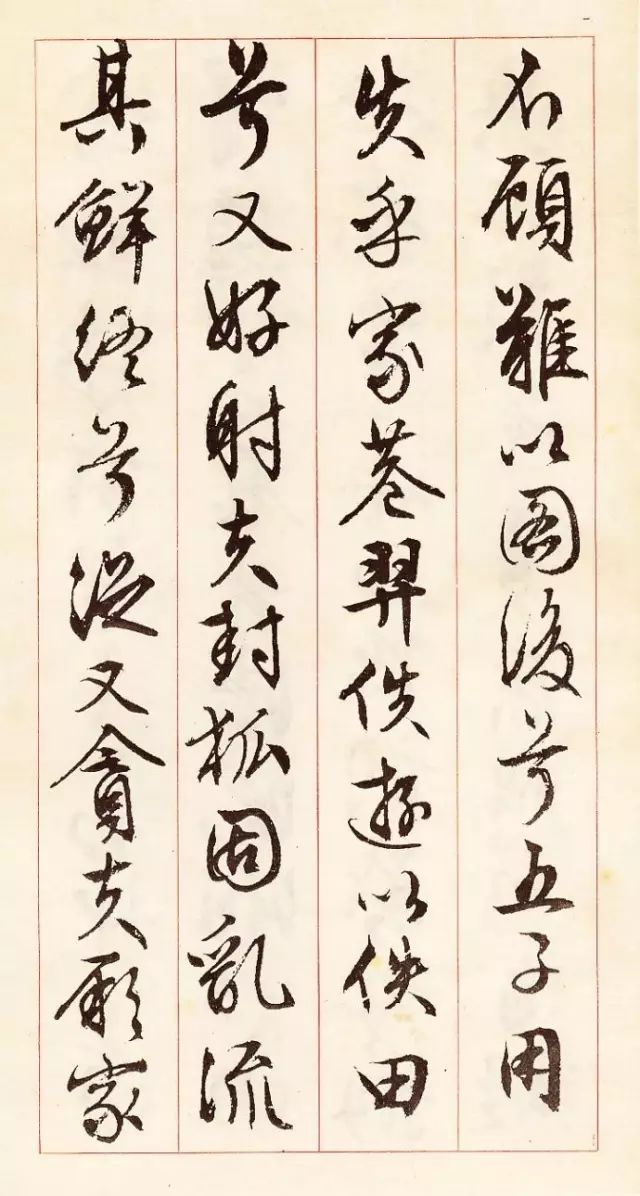 不顧難以圖後兮五子用
失乎家巷羿佚遊以佚田
兮又好射夫封狐固亂流
其鮮終兮浞又貪夫厥家